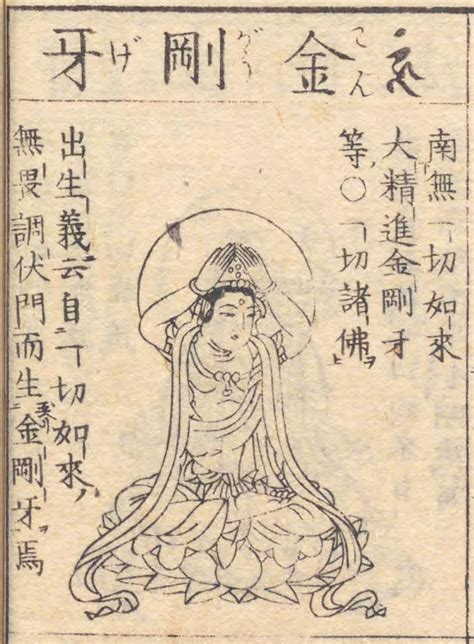 金剛牙
こんがうげ
南無一切如來
大精進金剛牙
等〇一切諸佛ヲ
出生義云自一切如來
無畏調伏門而生金剛牙ヲ焉